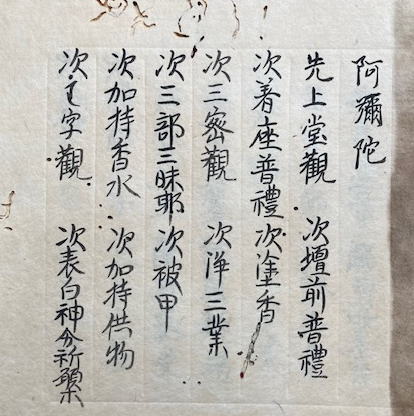 阿彌陀
先上堂觀 次壇前普禮
次着座普禮 次塗香
次三密觀 次淨三業
次三部三昧耶 次被甲
次加持香水 次加持供物
次字觀 次表白神分祈願